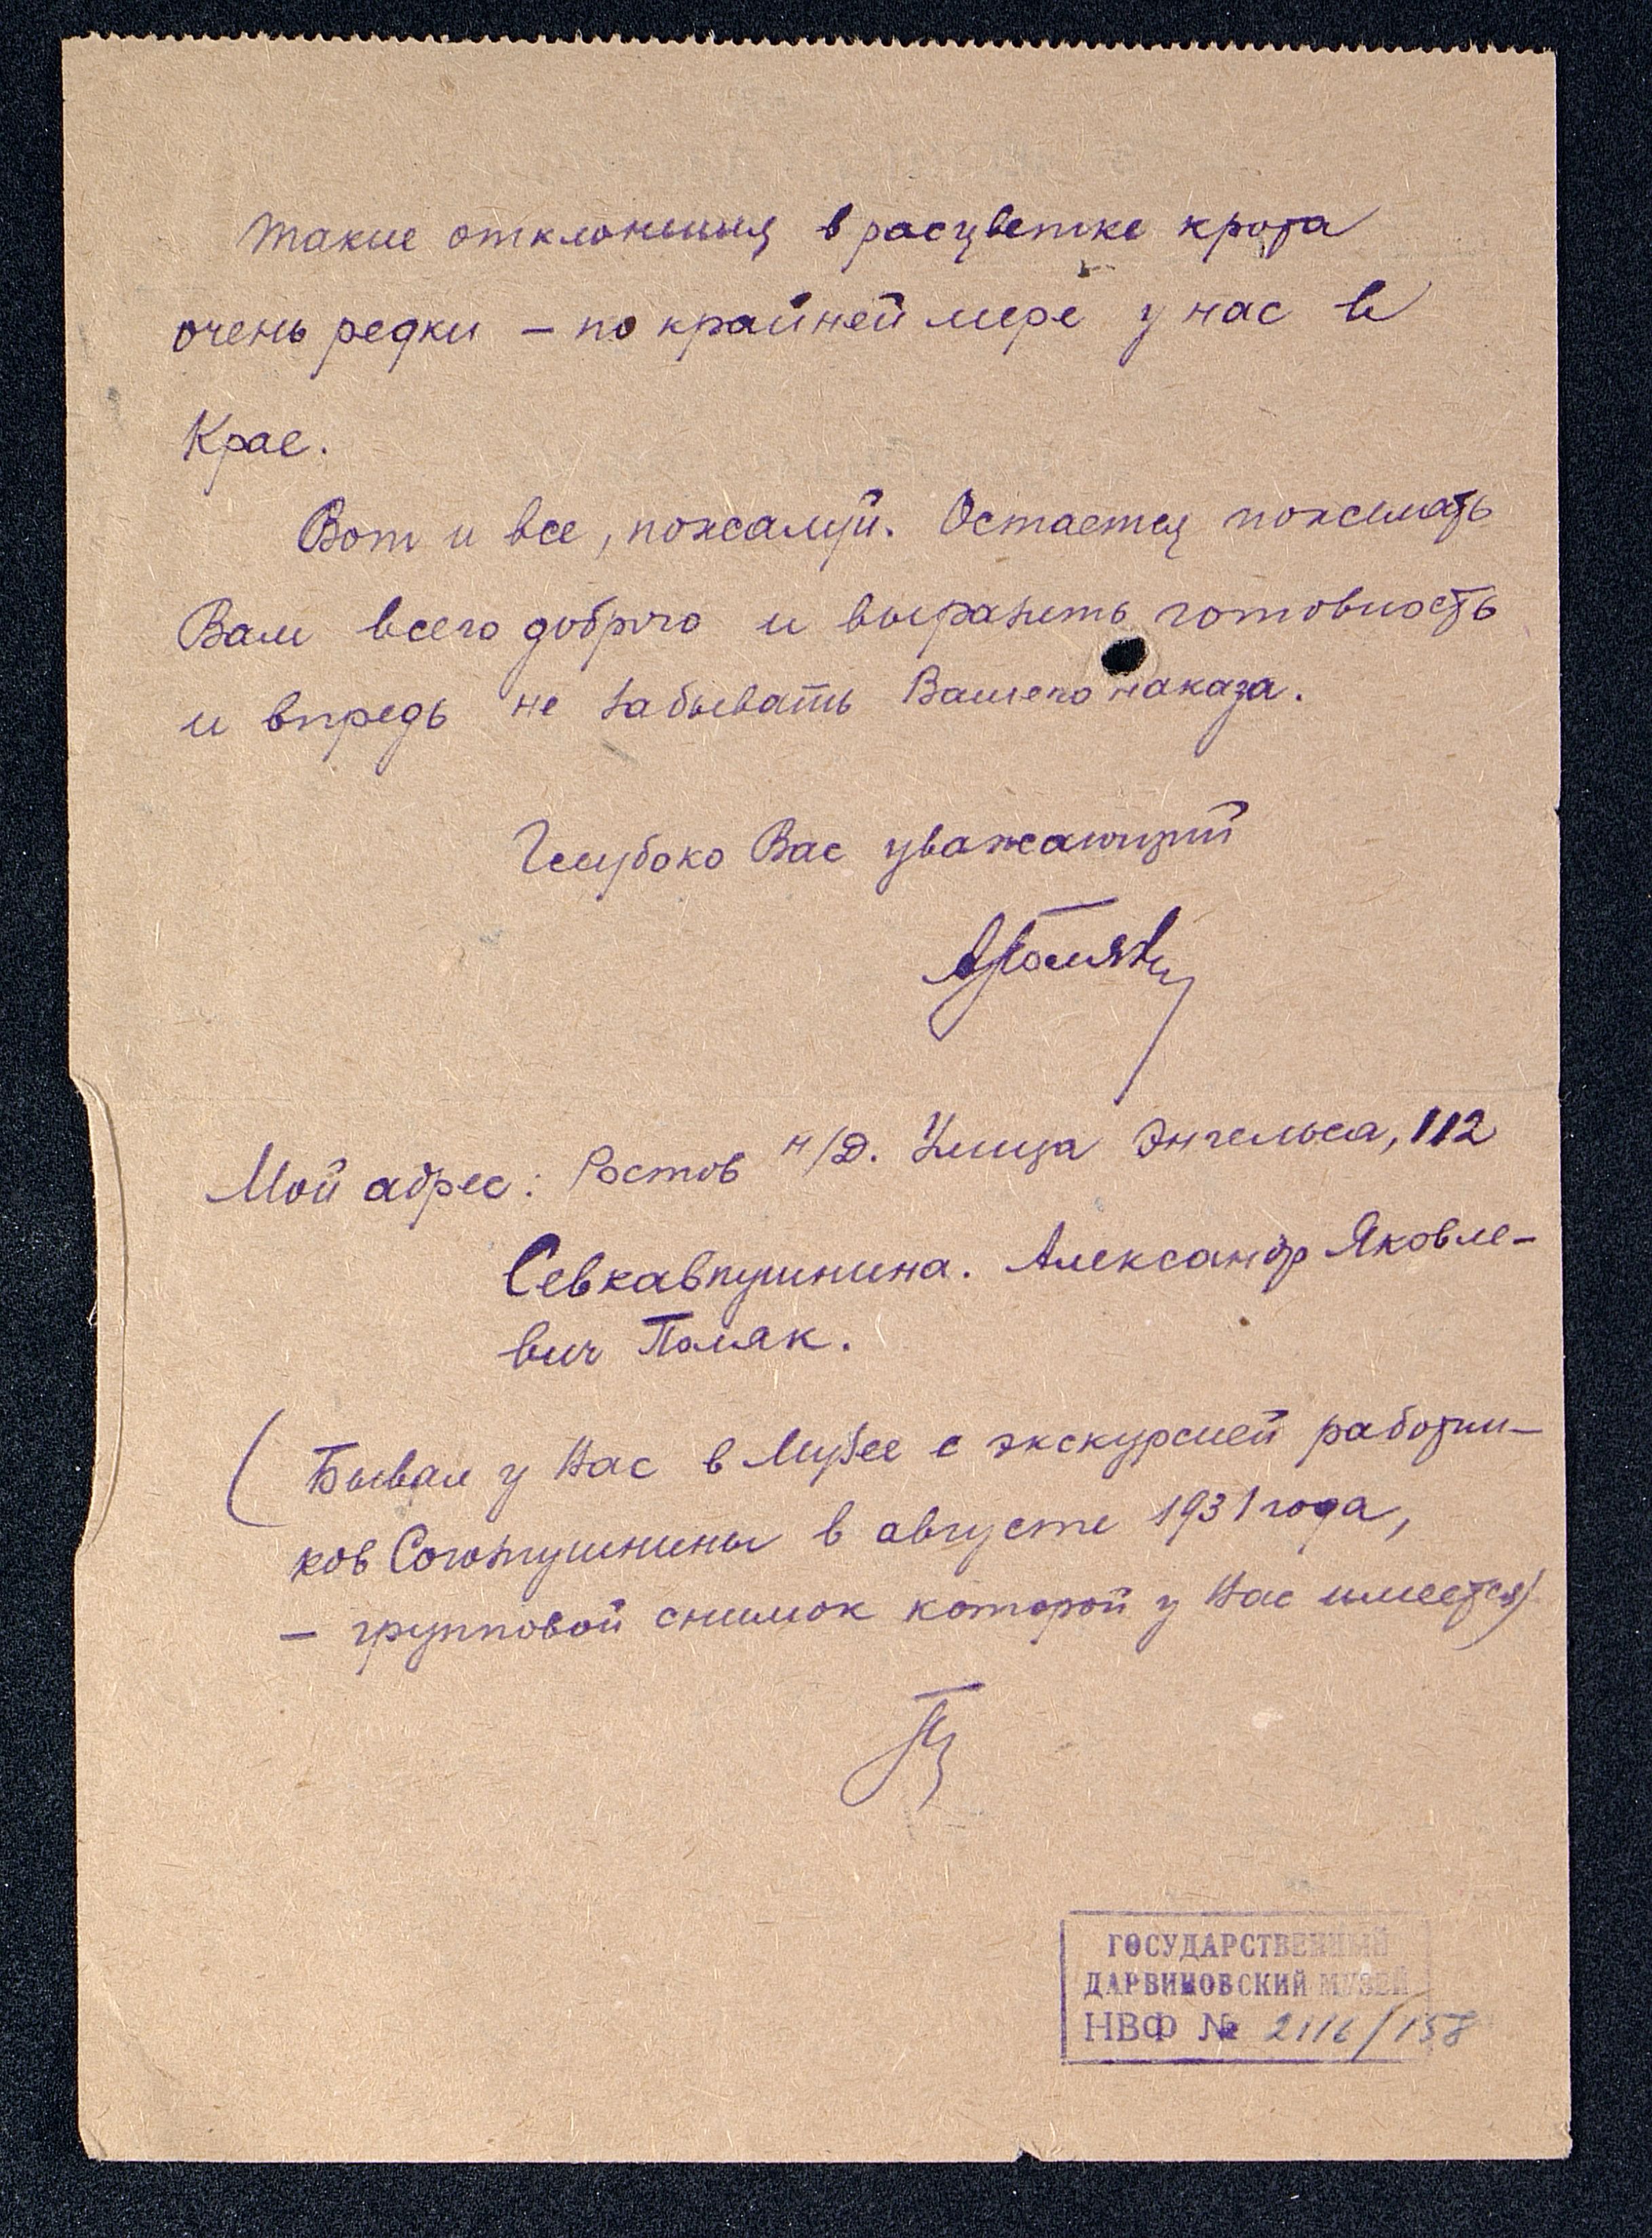 Такие отклонения в расцветке крота
очень редки – по крайней мере у нас в
Крае.
Вот и все, пожалуй. Остается пожелать
Вам всего доброго и выразить готовность
и впредь не забывать Вашего наказа.
Глубоко Вас уважающий
АПоляк
Мой адрес: Ростов н/Д. Улица Энгельса, 112
Севкавпушнина. Александр Яковле-
вич Поляк.
(Бывал у Вас в Музее с экскурсией работни-
ков Союзпушнины в августе 1931 года,
– групповой снимок которой у Вас имеется)
П
ГОСУДАРСТВЕННЫЙ
ДАРВИНОВСКИЙ МУЗЕЙ
НВФ № 2116/158